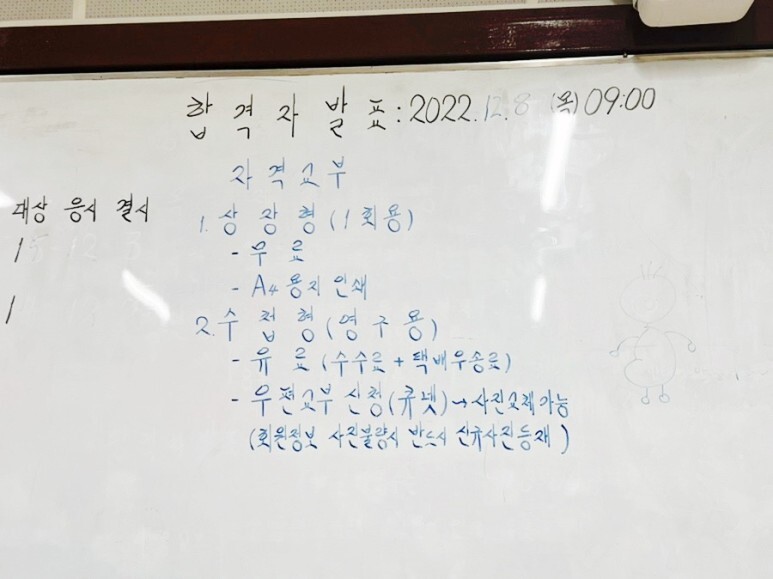 합격자발표: 2022.12.8 (목) 09:00
자격교부
대상 응시 결시
15 12 3
1
1. 상장형(1회용)
- 무료
- A4용지 인쇄
2. 수첩형(영구용)
- 유료(수수료+택배우송료)
- 우편교부 신청(큐넷)→사진교체가능
(회원정보 사진불량시 반드시 신규사진등재)